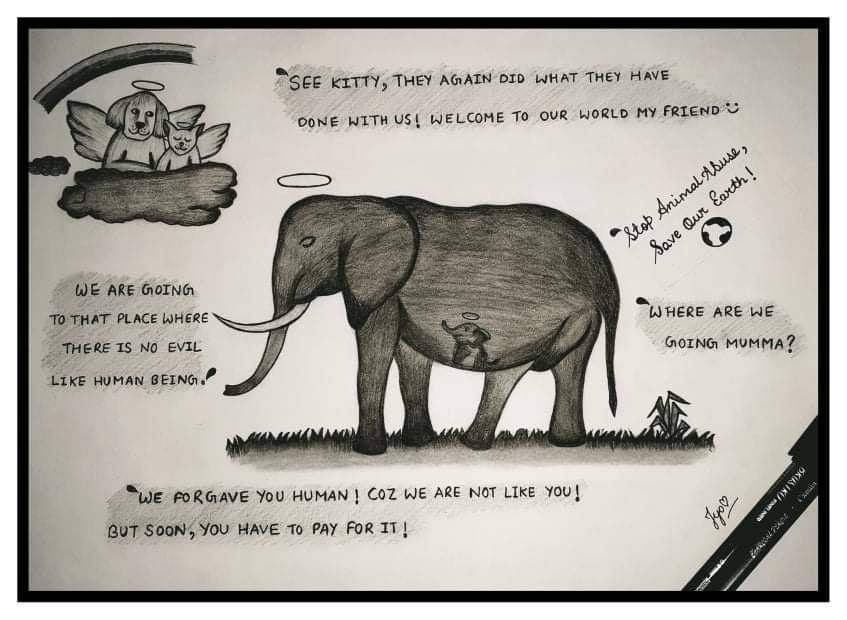 SEE KITTY, THEY AGAIN DID WHAT THEY HAVE
DONE WITH US! WELCOME TO OUR WORLD MY FRIEND
Stop Animal Abuse,
Save Our Earth!
WE ARE GOING
TO THAT PLACE WHERE
THERE IS NO EVIL
LIKE HUMAN BEING.
WHERE ARE WE
GOING MUMMA?
WE FORGAVE YOU HUMAN! COZ WE ARE NOT LIKE YOU!
BUT SOON, YOU HAVE TO PAY FOR IT!
Jyo